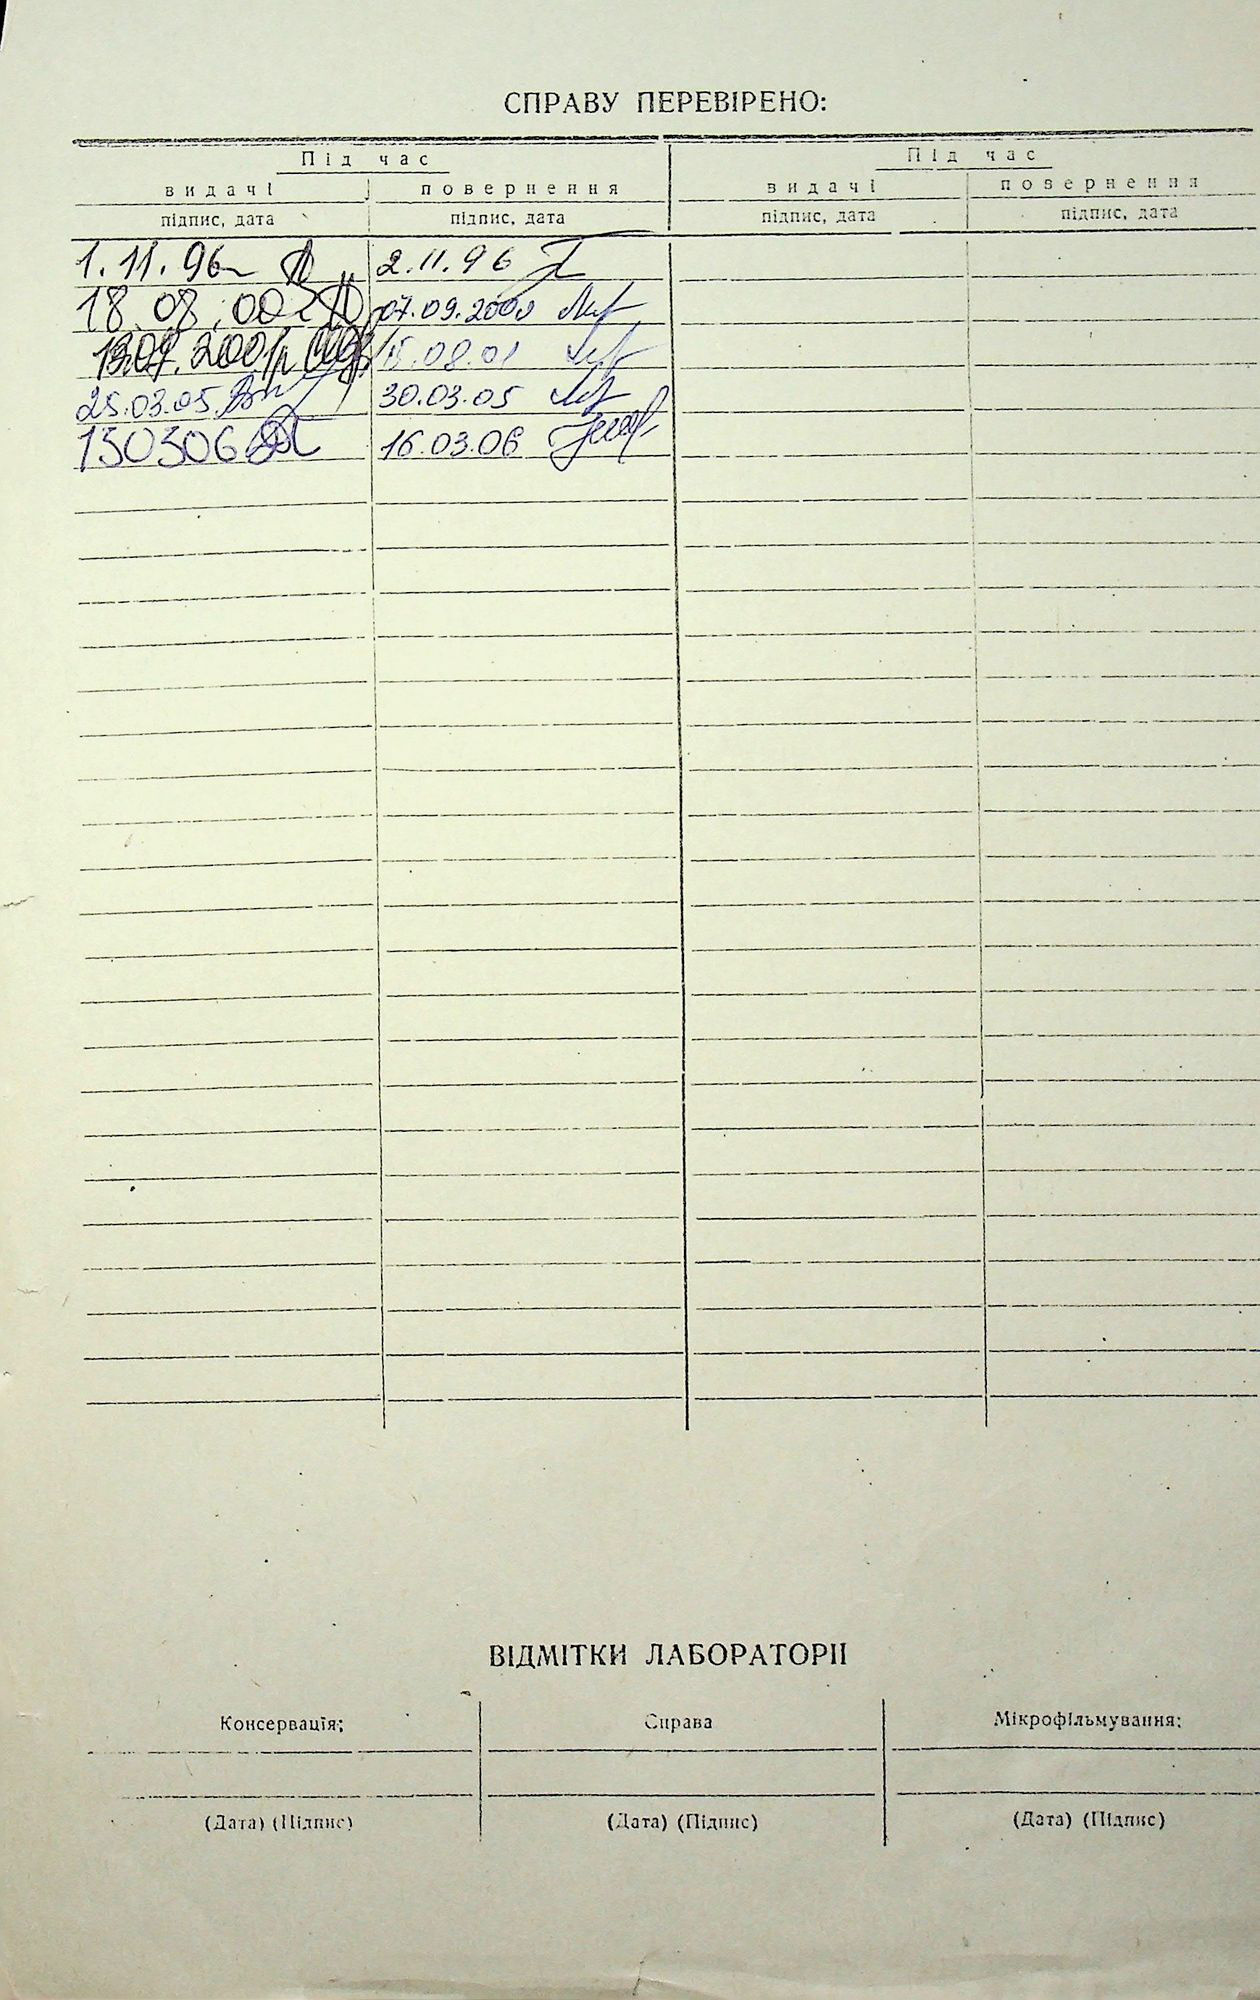 СПРАВУ ПЕРЕВІРЕНО:
Під час Під час
видачі повернення видачі повернення
підпис, дата підпис, дата підпис, дата підпис, дата
1.11.96 2.11.96
18.08.00 07.09.2000
2001р 15.08.01
25.03.05 30.03.05
130306 16.03.06
ВІДМІТКИ ЛАБОРАТОРІІ
Консервація: Справа Мікрофільмування:
(Дата) (Підпис) (Дата) (Підпис) (Дата) (Підпис)